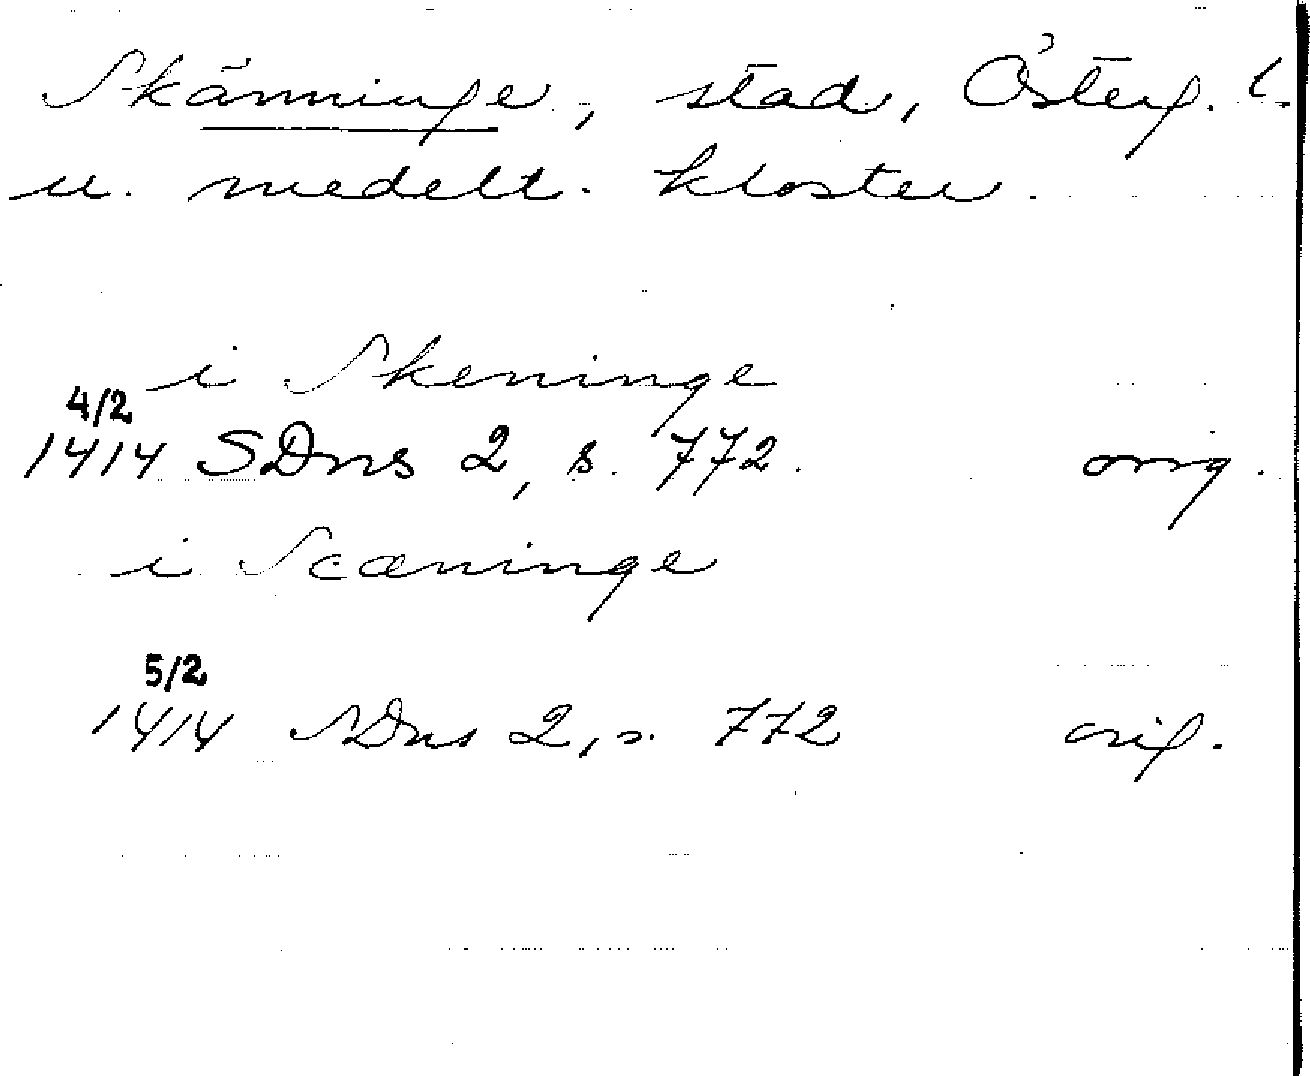 Skänninge, stad, Österg. l.
u. medelt. kloster.
i Skeninge
4/2
1414 SDns 2, s. 772. orig.
i Scæninge
5/2
1414 SDns 2, s. 772 orig.